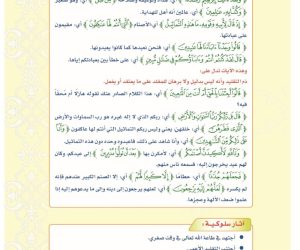 ﴿وَكُنَّا بِهِ عَالِمِينَ﴾ أي، عالمين أنه أهل للهداية.
﴿إِذْ قَالَ لِأَبِيهِ وَقَوْمِهِ مَا هَٰذِهِ التَّمَاثِيلُ﴾ أي: الأصنام ﴿الَّتِي أَنتُمْ لَهَا عَاكِفُونَ﴾ أي، مقيمون
على عبادتها.
﴿قَالُوا وَجَدْنَا آبَاءَنَا لَهَا عَابِدِينَ﴾ أي، فنحن نعبدها كما كانوا يعبدونها.
﴿قَالَ لَقَدْ كُنتُمْ أَنتُمْ وَآبَاؤُكُمْ فِي ضَلَالٍ مُّبِينٍ﴾ أي، على خطأ بين بعبادتكم إياها.
وهذه الآيات تدل على:
ذم التقليد وأنه ليس بدليل ولا برهان للمقلد على ما يعتقد أو يفعل.
﴿قَالُوا أَجِئْتَنَا بِالْحَقِّ أَمْ أَنتَ مِنَ اللَّاعِبِينَ﴾ أي، هذا الكلام الصادر عنك تقوله هازلا أم محقا
فيه؟
﴿قَالَ بَل رَّبُّكُمْ رَبُّ السَّمَاوَاتِ وَالْأَرْضِ﴾ أي، ربكم الذي لا إله غيره هو رب السماوات والأرض
﴿الَّذِي فَطَرَهُنَّ﴾ أي، خلقهن، يعني، وليس ربكم التماثيل التي أنتم لها عاكفون ﴿وَأَنَا
عَلَىٰ ذَٰلِكُم مِّنَ الشَّاهِدِينَ﴾ أي، وأنا شاهد على وحدانيته وحده دون هذه التماثيل.
﴿وَتَاللَّهِ لَأَكِيدَنَّ أَصْنَامَكُم﴾ أي، لأمكرن بها ﴿بَعْدَ أَن تُوَلُّوا مُدْبِرِينَ﴾ إلى عيدكم، وكان
لهم عيد يخرجون إليه، فسمعه ناس منهم.
﴿فَجَعَلَهُمْ جُذَاذًا﴾ أي، حطاما ﴿إِلَّا كَبِيرًا لَّهُمْ﴾ أي، إلا الصنم الكبير عندهم فإنه
لم يكسره ﴿لَعَلَّهُمْ إِلَيْهِ يَرْجِعُونَ﴾ أي، لعلهم يرجعون إلى دينه وإلى ما يدعوهم إليه إذا
علموا ضعف الآلهة وعجزها.
آثار سلوكية:
أجتهد في طاعة الله تعالى في وقت صغري.
أجتنب التقليد الأعمى.